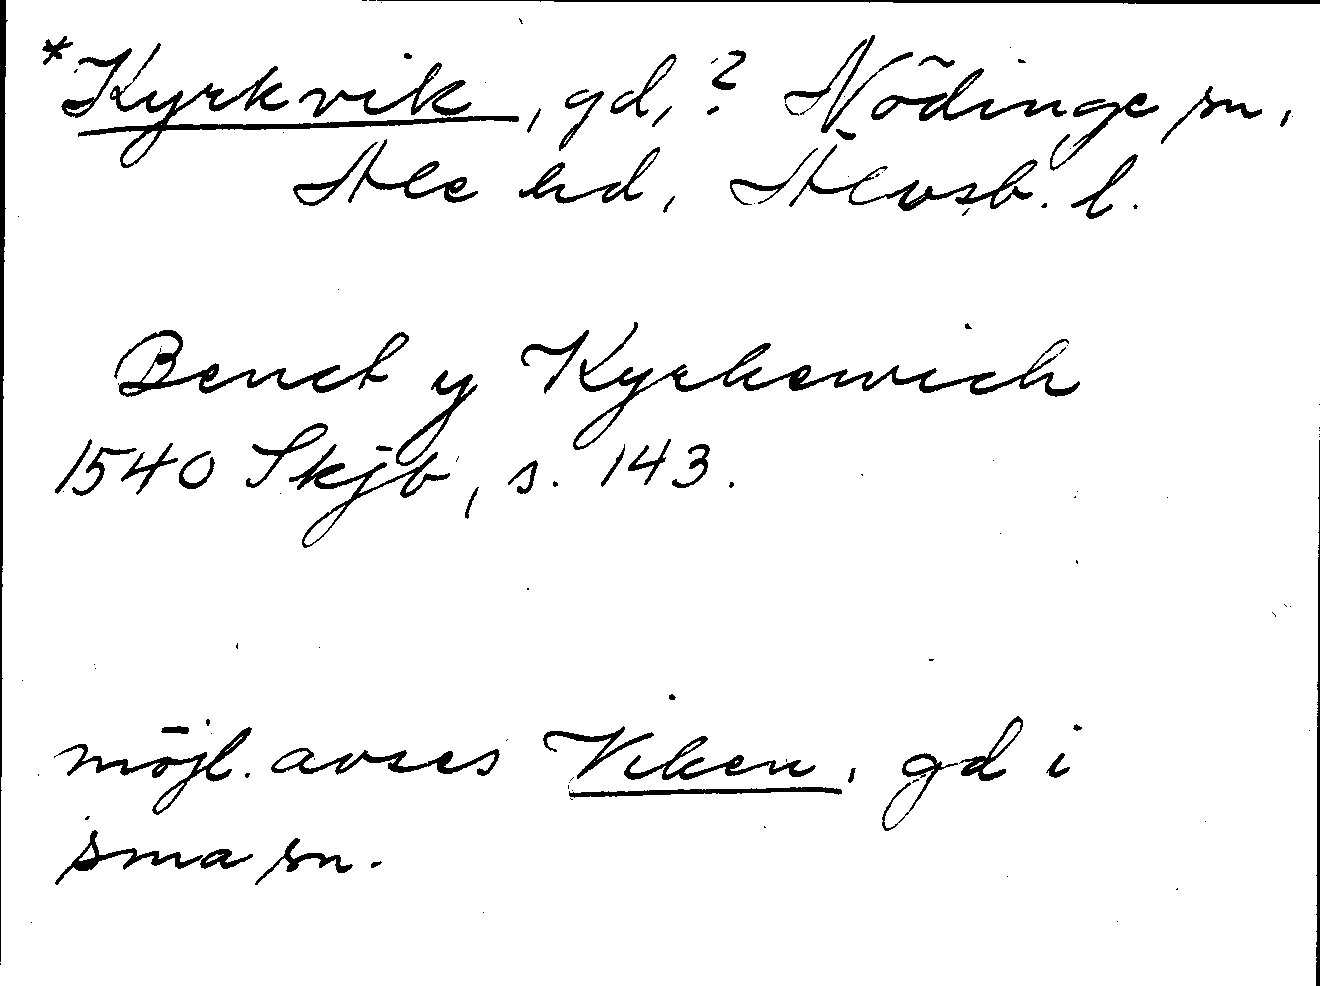 *Kyrkvik, gd,? Nödinge sn,
Ale hd, Älvsb. l.
Benct y Kyrkewich
1540 Skjb, s. 143.
möjl. avses Viken, gd i
sma sn.